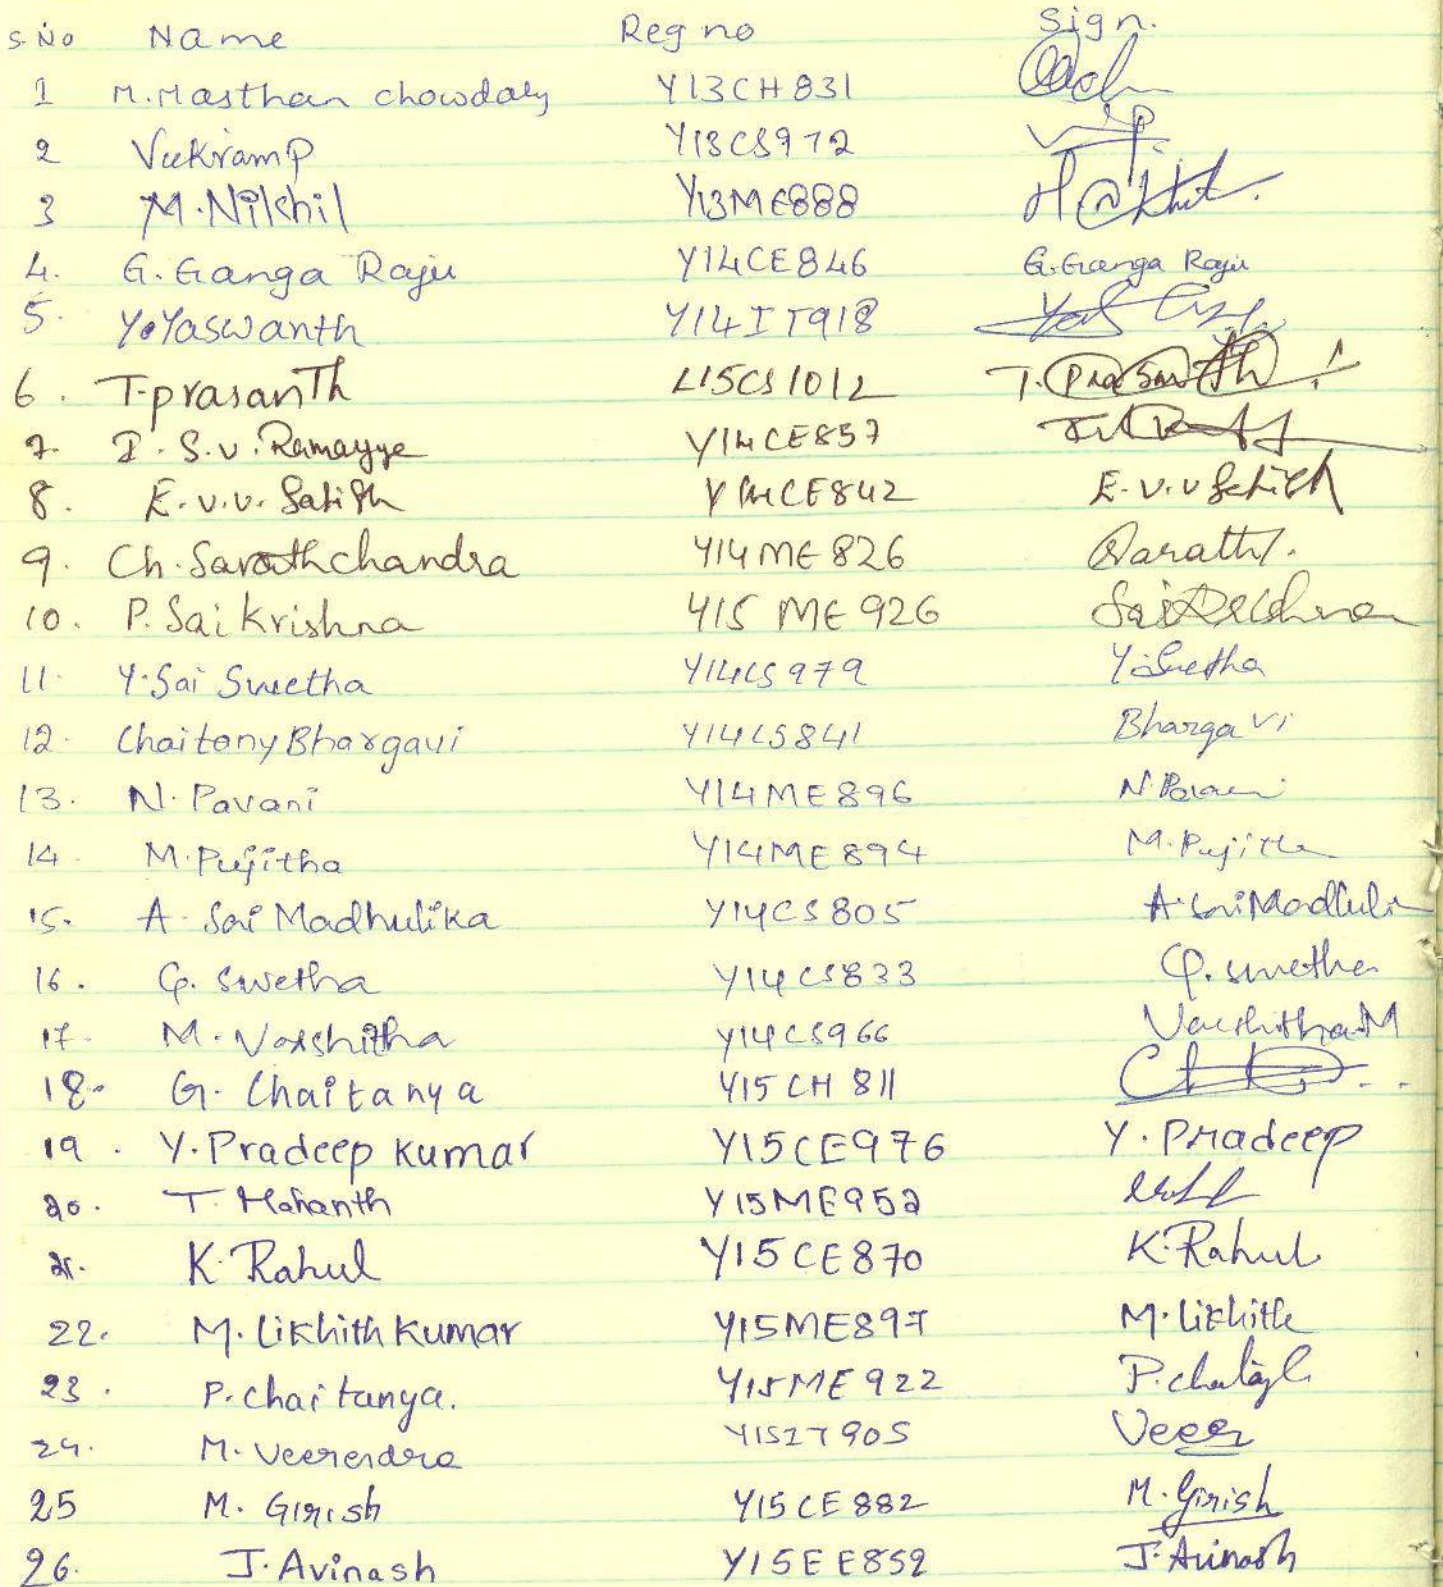 S.No Name Reg no Sign.
1 M.Masthan chowdary Y13CH831
2 Vikram P Y13CS972
3 M.Nikhil Y13ME888
4. G.Ganga Raju Y14CE846 G.Ganga Raju
5. Y.Yaswanth Y14IT918
6. T.prasanTh L15CS1012 T.PrasanTh
7. I.S.V.Ramayya Y14CE857
8. E.V.V.Satish Y14CE842 E.V.V Satish
9. Ch.Sarathchandra Y14ME826 Sarath
10. P.Sai Krishna Y15 ME 926 Sai Krishna
11. Y.Sai Swetha Y14CS979 Y.Swetha
12. Chaitany Bhargavi Y14CS841 Bhargavi
13. N.Pavani Y14ME896 N.Pavani
14. M.Pujitha Y14ME894 M.Pujitha
15. A.Sai Madhulika Y14CS805 A.Sai Madhuli
16. G.Swetha Y14CS833 G.swetha
17. M.Varshitha Y14CS966 Varshitha.M
18. G.Chaitanya Y15CH811
19. Y.Pradeep Kumar Y15CE976 Y.Pradeep
20. T.Mahanth Y15ME952
21. K.Rahul Y15CE870 K.Rahul
22. M.Likhith Kumar Y15ME897 M.Likhith
23. P.chaitanya. Y15ME922
24. M.Veerendra Y15IT905 Veer
25 M.Girish Y15CE882 M.Girish
26. J.Avinash Y15EE852 J.Avinash